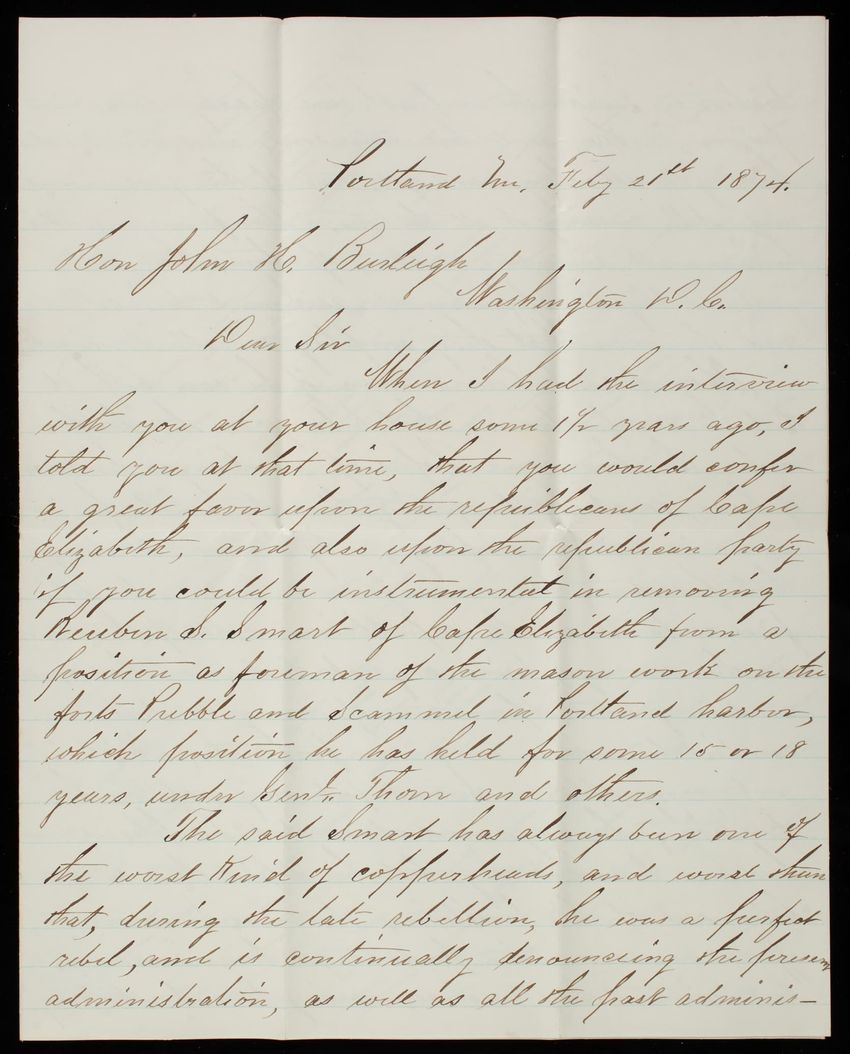 Portland Me, Feby 21st 1874.
Hon John H. Burleigh
Washington D. C.
Dear Sir
When I had the interview
with you at your house some 1½ years ago, I
told you at that time, that you would confer
a great favor upon the republicans of Cape
Elizabeth, and also upon the republican party
if you could be instrumental in removing
Reuben S. Smart of Cape Elizabeth from a
position as foreman of the mason work on the
forts Prebble and Scammel in Portland harbor,
which position he has held for some 15 or 18
years, under Genl. Thom and others.
The said Smart has always been one of
the worst kind of copperheads, and worse than
that, during the late rebellion, he was a perfect
rebel, and is continually denouncing the present
administration, as well as all the past adminis–